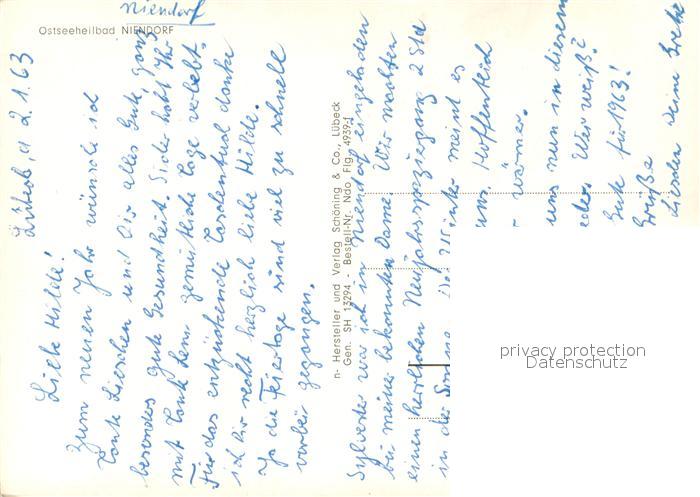 Niendorf
Ostseeheilbad NIENDORF
d 2.1.63
Liebe Hilde!
Zum neuen Jahr wünsche ich
Tante Lieschen und Dir alles Gute, ganz
besonders gute Gesundheit. Sicher habt Ihr
mit Tante Leni gemütliche Tage verlebt.
Für das entzückende Taschentuch danke
ich Dir recht herzlich liebe Hilde.
Ja die Feiertage sind viel zu schnell
vorbei gegangen.
n- Hersteller und Verlag Schöning & Co., Lübeck
Gen. SH 13294 - Bestell-Nr. Ndo. Flg. 4939-1
Sylvester war ich in Niendorf eingeladen
bei meiner bekannten Dame. Wir machten
einen herrlichen Neujahrsspaziergang 2 Std
in der Sonne. Der Winter meint es
uns. Hoffentlich
wärmer.
uns nun in diesem
Wer weiß?
Gute für 1963!
Grüße
Lieschen Deine Grete
privacy protection
Datenschutz